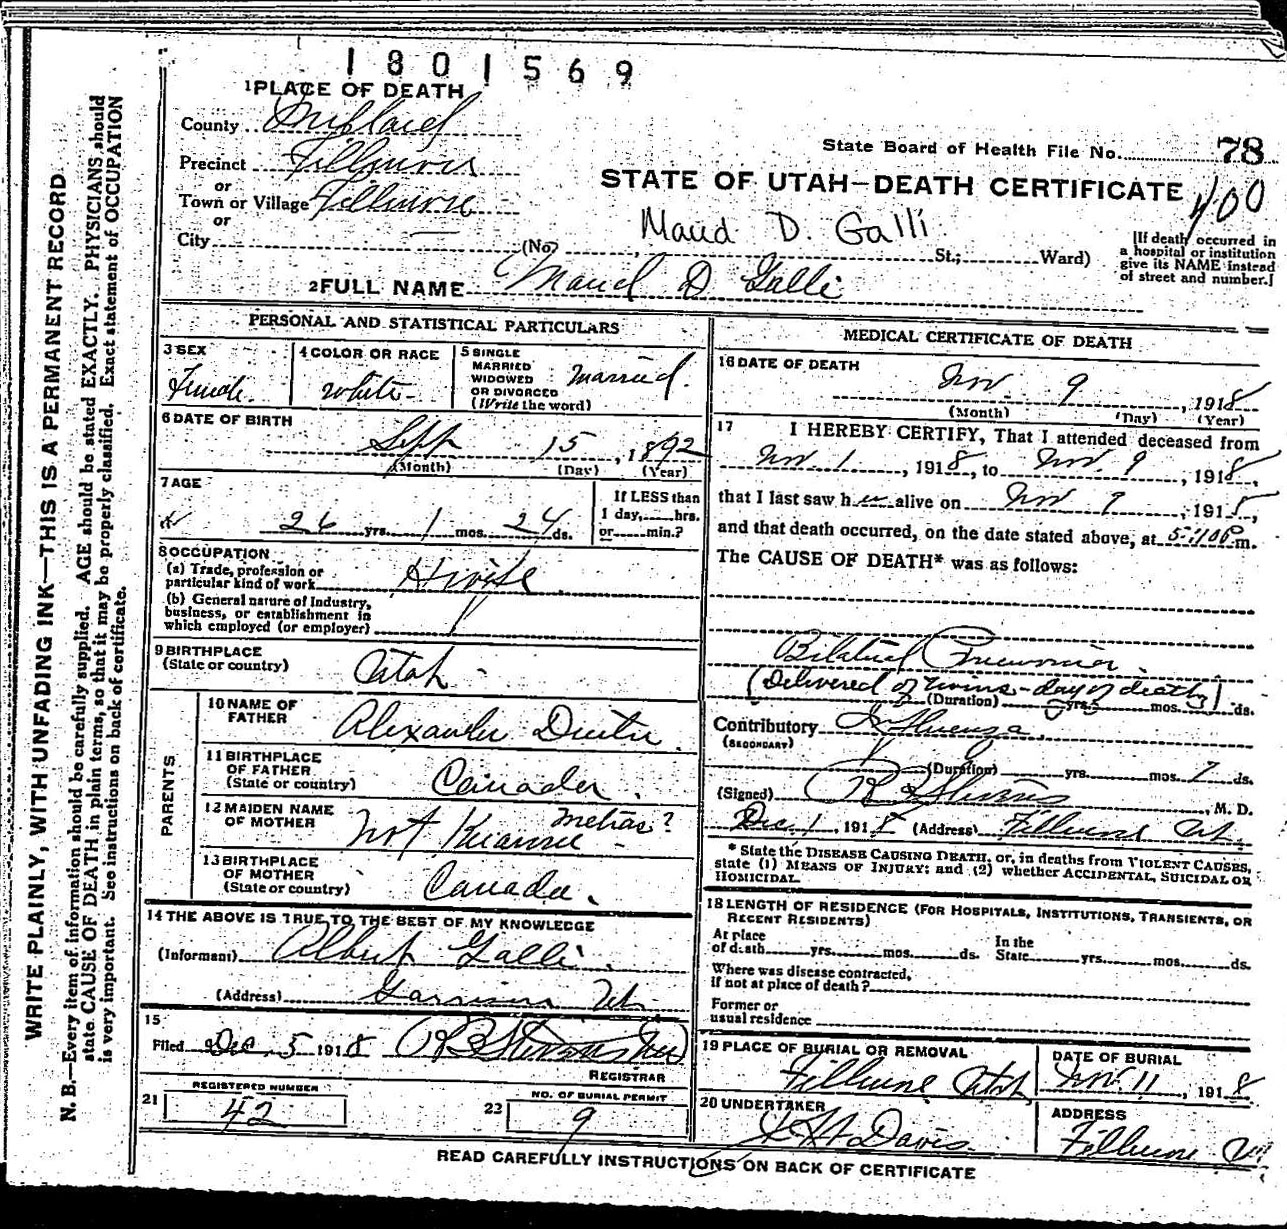 1801569
1 PLACE OF DEATH
County Millard
Precinct Fillmore
or
Town or Village Fillmore
or
City (No. St.; Ward)
State Board of Health File No. 78
STATE OF UTAH—DEATH CERTIFICATE
400
Maud D. Galli
[If death occurred in
a hospital or institution
give its NAME instead
of street and number.]
2 FULL NAME Maud D Galli
PERSONAL AND STATISTICAL PARTICULARS
3 SEX
Female
4 COLOR OR RACE
White
5 SINGLE
MARRIED
WIDOWED
OR DIVORCED
(Write the word)
Married
6 DATE OF BIRTH
Sept 15, 1892
(Month) (Day) (Year)
7 AGE
26 yrs. 1 mos. 24 ds.
If LESS than
1 day, hrs.
or min.?
8 OCCUPATION
(a) Trade, profession or
particular kind of work H wife
(b) General nature of Industry,
business, or establishment in
which employed (or employer)
9 BIRTHPLACE
(State or country) Utah
PARENTS
10 NAME OF
FATHER Alexander
11 BIRTHPLACE
OF FATHER
(State or country) Canada.
12 MAIDEN NAME
OF MOTHER Not Known
13 BIRTHPLACE
OF MOTHER
(State or country) Canada.
14 THE ABOVE IS TRUE TO THE BEST OF MY KNOWLEDGE
(Informant) Albert Galli.
(Address) Garrison Utah
15
Filed Dec. 5 1918
REGISTRAR
21 REGISTERED NUMBER
42
22 NO. OF BURIAL PERMIT
9
MEDICAL CERTIFICATE OF DEATH
16 DATE OF DEATH
Nov. 9, 1918
(Month) (Day) (Year)
17 I HEREBY CERTIFY, That I attended deceased from
Nov. 1, 1918, to Nov. 9, 1918,
that I last saw her alive on Nov 9, 1918,
and that death occurred, on the date stated above, at m.
The CAUSE OF DEATH* was as follows:
Bilateral Pneumonia.
(Delivered of twins - day of death)
(Duration) yrs. mos. ds.
Contributory Influenza
(SECONDARY)
(Duration) yrs. mos. 7 ds.
(Signed) R B Stevens M. D.
Dec. 1 1918 (Address) Fillmore Ut.
* State the DISEASE CAUSING DEATH, or, in deaths from VIOLENT CAUSES,
state (1) MEANS OF INJURY; and (2) whether ACCIDENTAL, SUICIDAL OR
HOMICIDAL.
18 LENGTH OF RESIDENCE (FOR HOSPITALS, INSTITUTIONS, TRANSIENTS, OR
RECENT RESIDENTS)
At place
of death yrs. mos. ds.
In the
State yrs. mos. ds.
Where was disease contracted,
if not at place of death?
Former or
usual residence
19 PLACE OF BURIAL OR REMOVAL
Fillmore Utah
DATE OF BURIAL
Nov. 11, 1918
20 UNDERTAKER
Davis
ADDRESS
Fillmore
READ CAREFULLY INSTRUCTIONS ON BACK OF CERTIFICATE
WRITE PLAINLY, WITH UNFADING INK—THIS IS A PERMANENT RECORD
N. B.—Every item of information should be carefully supplied. AGE should be stated EXACTLY. PHYSICIANS should
state CAUSE OF DEATH in plain terms, so that it may be properly classified. Exact statement of OCCUPATION
is very important. See instructions on back of certificate.